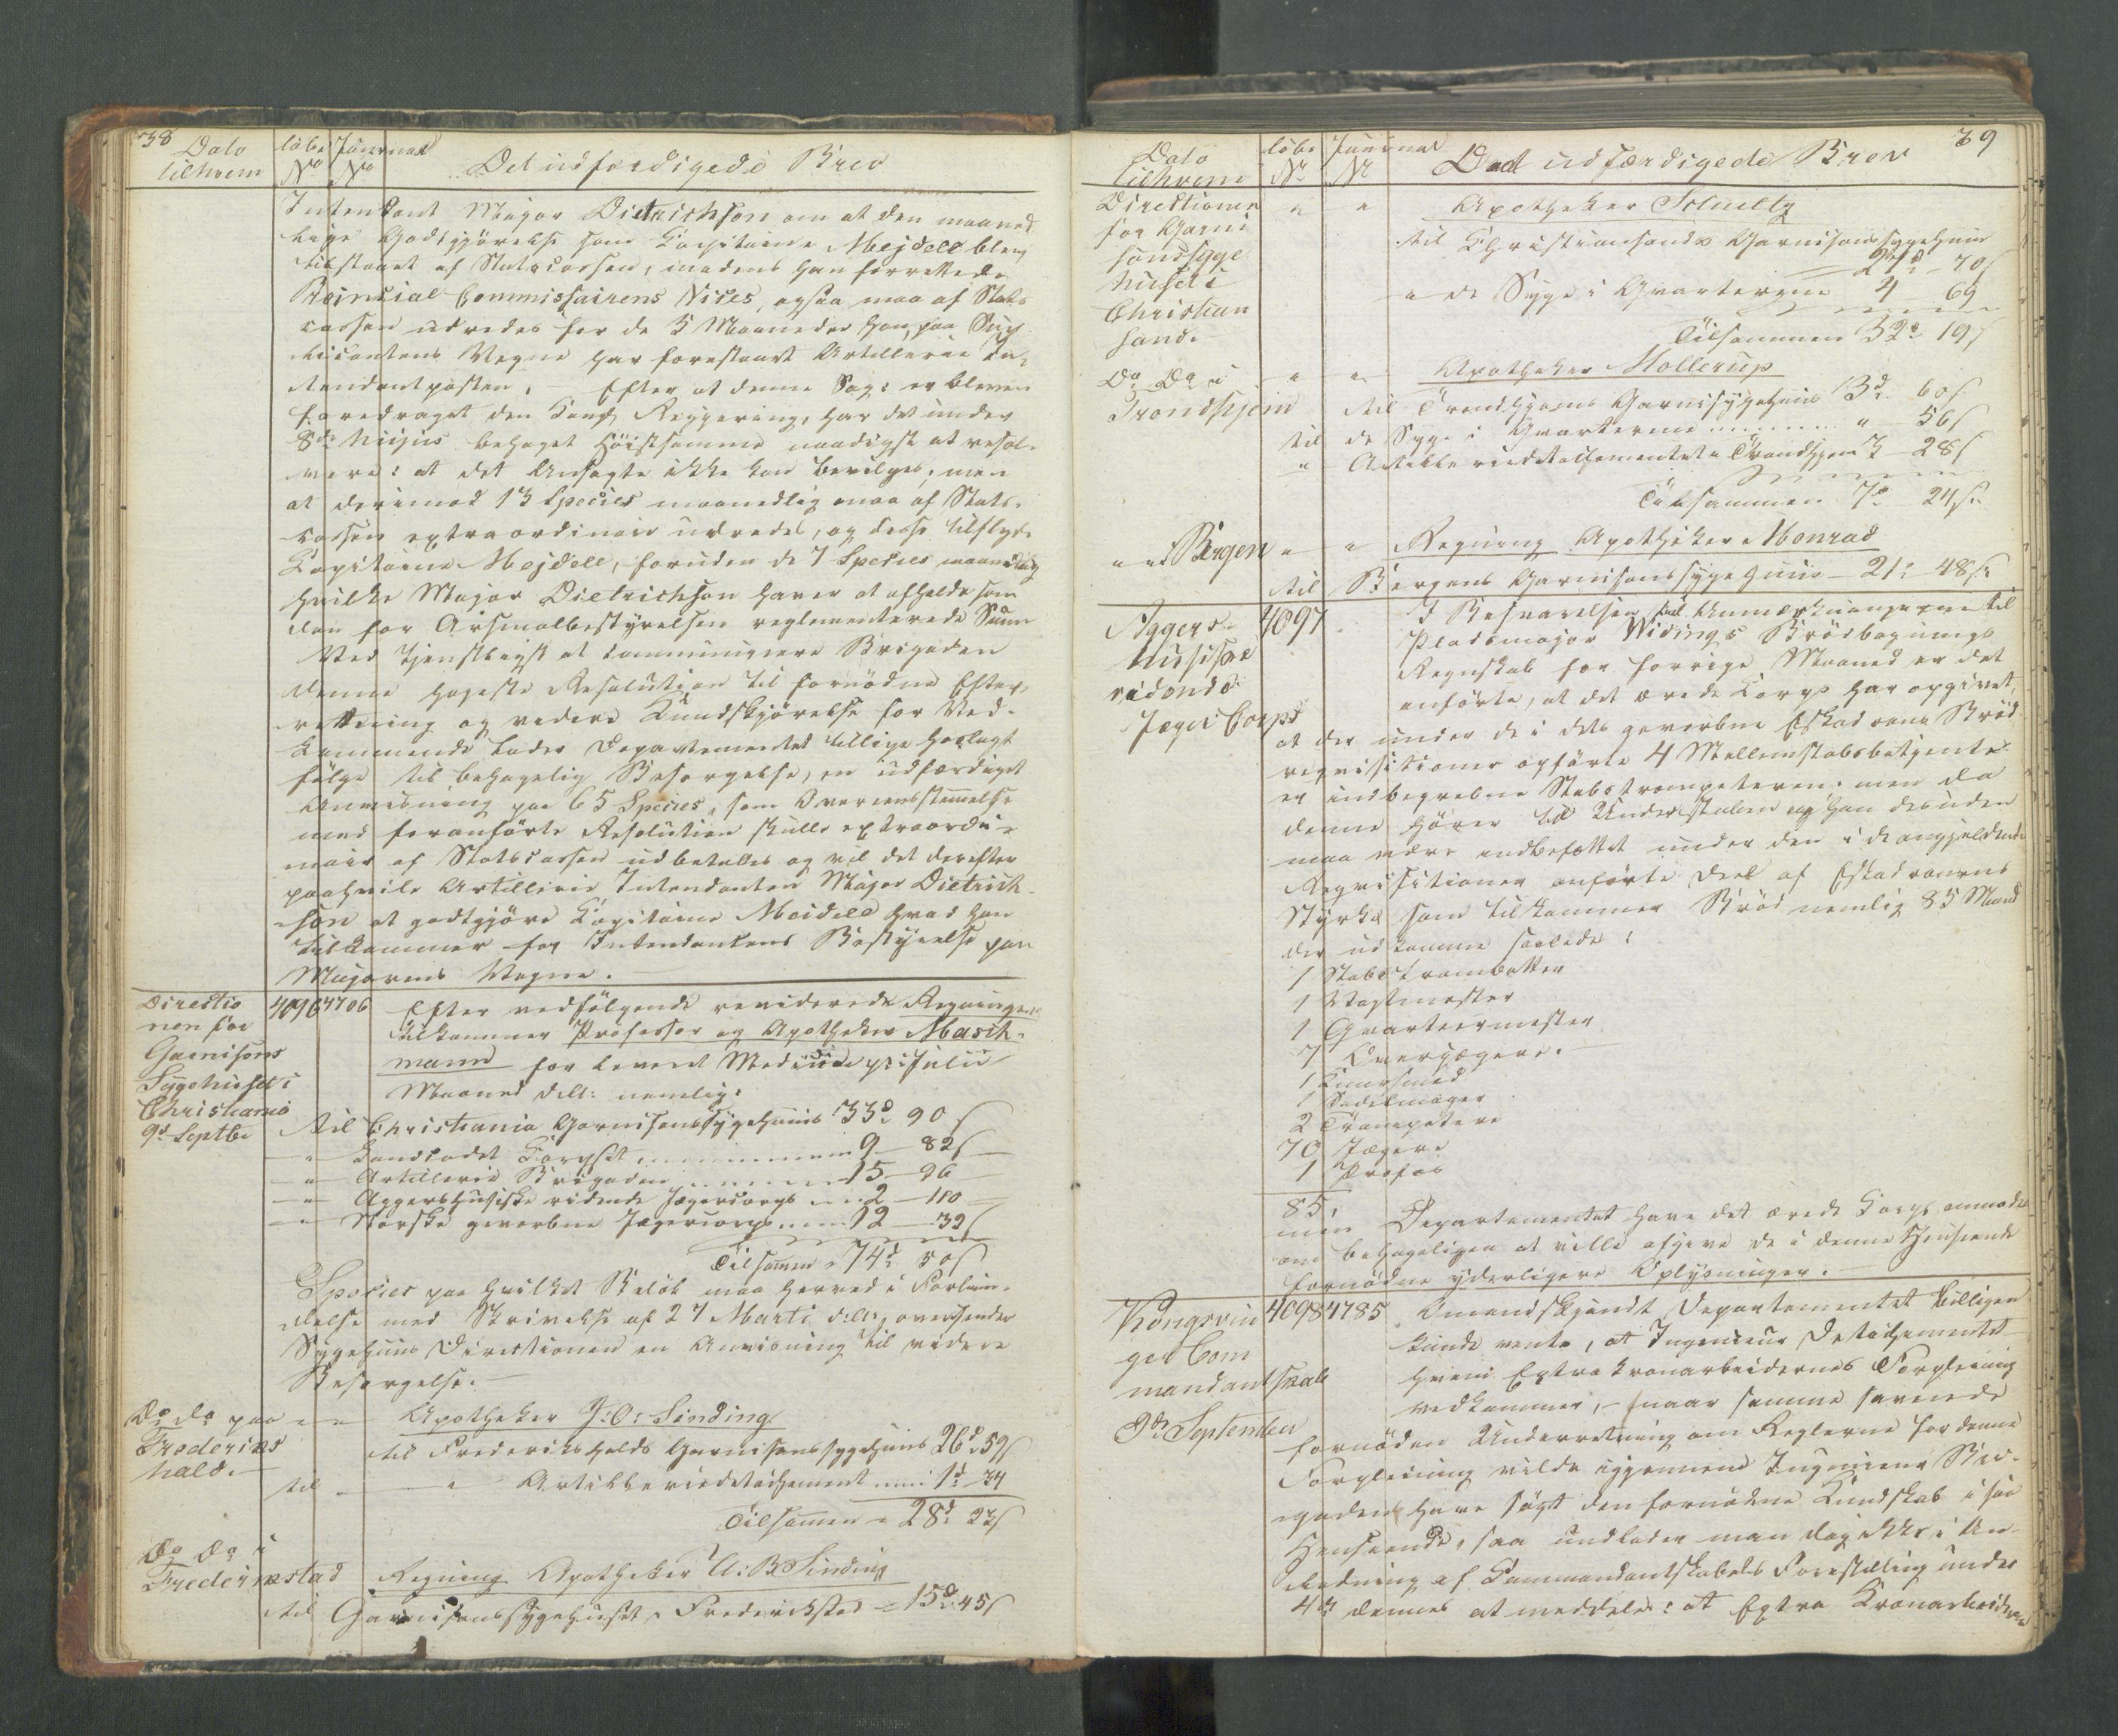 38
Dato
tilhvem
löbe
No
Journal
No
Det udfærdigede Brev
Intendant Major Dietrichson om at den maaned
lige Godtgjörelse som Capitaine Mejdell blev
tilstaaet af Statscassen, medens han forrettede
Provincial Commissairens Vices, ogsaa maa af Stats
cassen udredes for de 5 Maaneder han, paa Sup
plicantens Vegne har forestaaet Artillerie In-
tendantposten. Efter at denne Sag er bleven
foredraget den Kongl. Regjering, har det under
8de hujus behaget Höistsamme naadigst at resol-
vere: at det Ansøgte ikke kan bevilges, men
at derimod 13 Species maanedlig maa af Stats-
cassen extraordinair udredes, og disse tilflyde
Capitaine Mejdell, foruden de 7 Species maanedlig
hvilke Major Dietrichson haver at afholde som
den for Arsenalbestyrelsen reglementerede Sum
Ved tjenstligst at communicere Brigaden
denne höjeste Resolution til fornödne Efter-
retning og videre Kundgjörelse for Ved-
kommende lader Departementet tillige hoslagt
fölge til behagelig Besörgelse, en udfærdiget
Anviisning paa 65 Species, som Overeensstemmelse
med foranförte Resolution skulle extraordi-
nair af Statscassen udbetales og vil det derefter
paahvile Artillerie Intendanten Major Dietrich-
son at godtgjöre Capitaine Meidell hvad han
tilkommer for Intendantens Bestyrelse paa
Majorens Vegne.
Directio
nen for
Garnisons
Sygehuset i
Christiania
9d Septbr
4096
4706
Efter vedfölgende reviderede Regninger
tilkommer Professor og Apotheker Masch-
mann for leveret Medicin pr: Julii
Maaned d.A: nemlig:
til Christiania Garnisonssygehuus 33d 90 s
" Landcadet Corpset 9 - 82 s
" Artillerie Brigaden 15 - 26
" Aggershusiske ridende Jægercorps 2 - 110
" Norske gevorbne Jægercorps 12 - 32 s
Tilsammen 74d 50 s
Species paa hvilket Belöb maa herved i Forbin-
delse med Skrivelse af 27 Marti d.A:, oversendes
Sygehuus Directionen en Anviisning til videre
Besörgelse.
Do do paa
Frederiks
hald.
" "
Apotheker J: O: Sinding
til Frederikshalds Garnisonssygehuus 26d 59 s
til " Artilleriedetachement 1d 34
Tilsammen 28d 23 s
Do Do i
Frederikstad
Regning Apotheker U: B Sinding
til Garnisonssygehuset i Frederikstad 15d 45 s
39
Dato
tilhvem
löbe
Nr
Journal
Nr
Det udfærdigede Brev
Directionen
for Garni
sonssyge
huset i
Christian
sand.
" "
Apotheker
til Christiansands Garnisonssygehuus
70 s
" de Syge i Qvartererne 4 69
Tilsammen 32d 19 s
Do Do i
Trondhjem
" "
Apotheker Mollerup
til Trondhjems Garnisygehuus 3d 60 s
til de Syge i Qvartererne " 56 s
" Artilleriedetachementet i Trondhjem 3 - 28 s
Tilsammen 7d 24 s.
" " Bergen
" "
Regning Apotheker Monrad
til Bergens Garnisonssygehuus - 21: 48 s.
Aggers-
husiske
ridende
Jæger Corps
4097
I Besvarelsen paa Anmærkningerne til
Pladsmajor Widings Brödbagnings
Regnskab for forrige Maaned er det
anförte, at det ærede Corps har opgivet,
at der under de i dets gevorbne Eskadrons Bröd
reqvisitioner opförte 4 Mellemstabsbetjente
er indbegreben Stabstrompeteren; men da
denne hörer til Understaben og han desuden
maa være indbefattet under den i de angjeldende
Reqvisitioner anförte Deel af Eskadronens
Styrke som tilkommer Bröd nemlig 85 Mand
der udkomme saalede:
1 Stabstrompeter
1 Vagtmester
1 Qvarteermester
7 Overjægere.
1 Cuursmed
1 Sadelmager
2 Trompetere
70 Jægere
1 Profos
85,
men Departementet have det ærede Corps anmodet
om behageligen at ville afgive de i denne Henseende
fornödne yderligere Oplysninger.
Kongsvin
ger Com
mandantskab
9de September
4098
4785
Omendskjöndt Departementet billigen
kunde vente, at Ingenieur Detachementet
hvem Extra Kronarbeidernes Forpleining
vedkommer, naar samme savnede
fornöden Underretning om Reglerne for denne
Forpleining vilde igjennem Ingenieur Bri-
gaden have sögt den fornödne Kundskab i saa
Henseende, saa undlader man dog ikke i An-
ledning af Commandantskabets Forestilling under
4de dennes at meddele: at Extra Kronarbeiderne